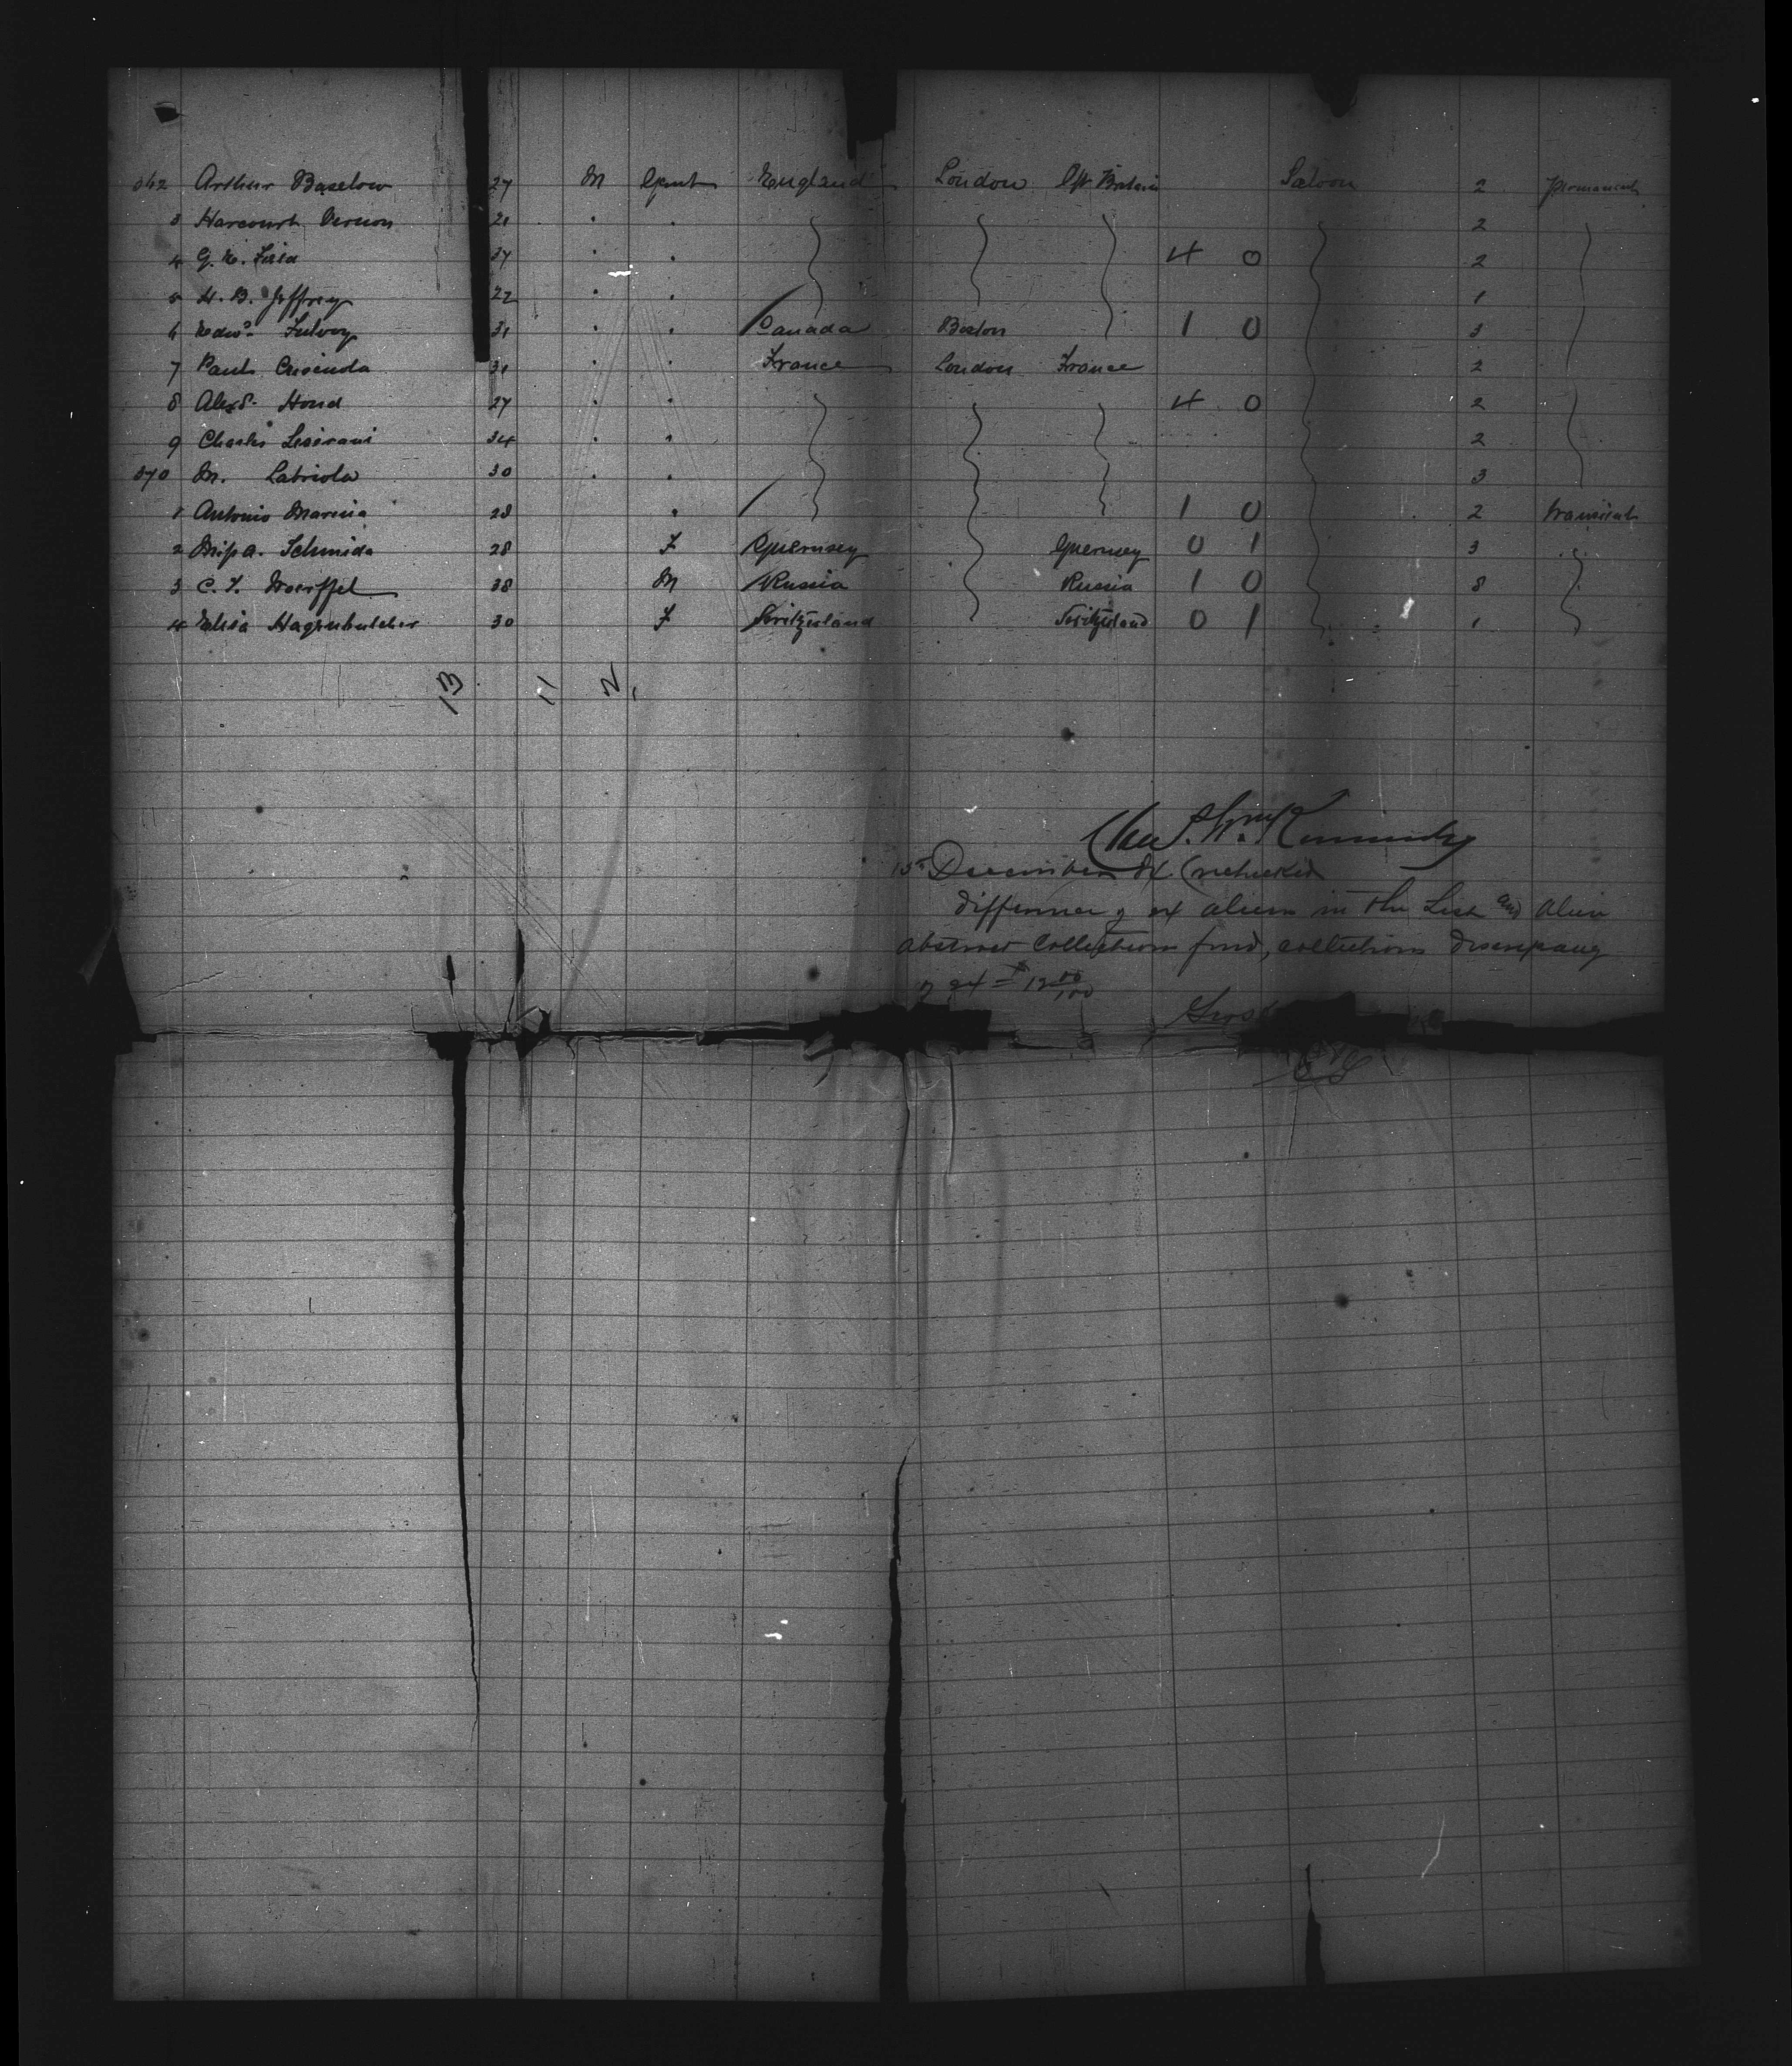 362 Arthur Baselow 27 M Gent England London Gt Britain Saloon 2 permanent
3 Harcourt Vernon 21 " " 2
4 G. E. 37 " " 4 0 2
5 H. B. Jeffrey 22 " " 1
6 31 " " Canada Boston 1 0 3
7 Paul 31 " " France London France 2
8 Alexr. Hond 27 " " 4 0 2
9 Charles 34 " " 2
370 M. Labriola 30 " " 3
1 Antonio Marina 28 " 1 0 2 transient
2 Miss A. Schmida 28 F Guernsey Guernsey 0 1 3
3 C. F. Woerffel 38 M Russia Russia 1 0 8
4 Elisa Hagenbutcher 30 F Switzerland Switzerland 0 1 1
13 11 2
Kennedy
15th December
difference of 24 aliens in the List and Alien
abstract Collections fund, collections discrepancy
of 24 = $12 00/100